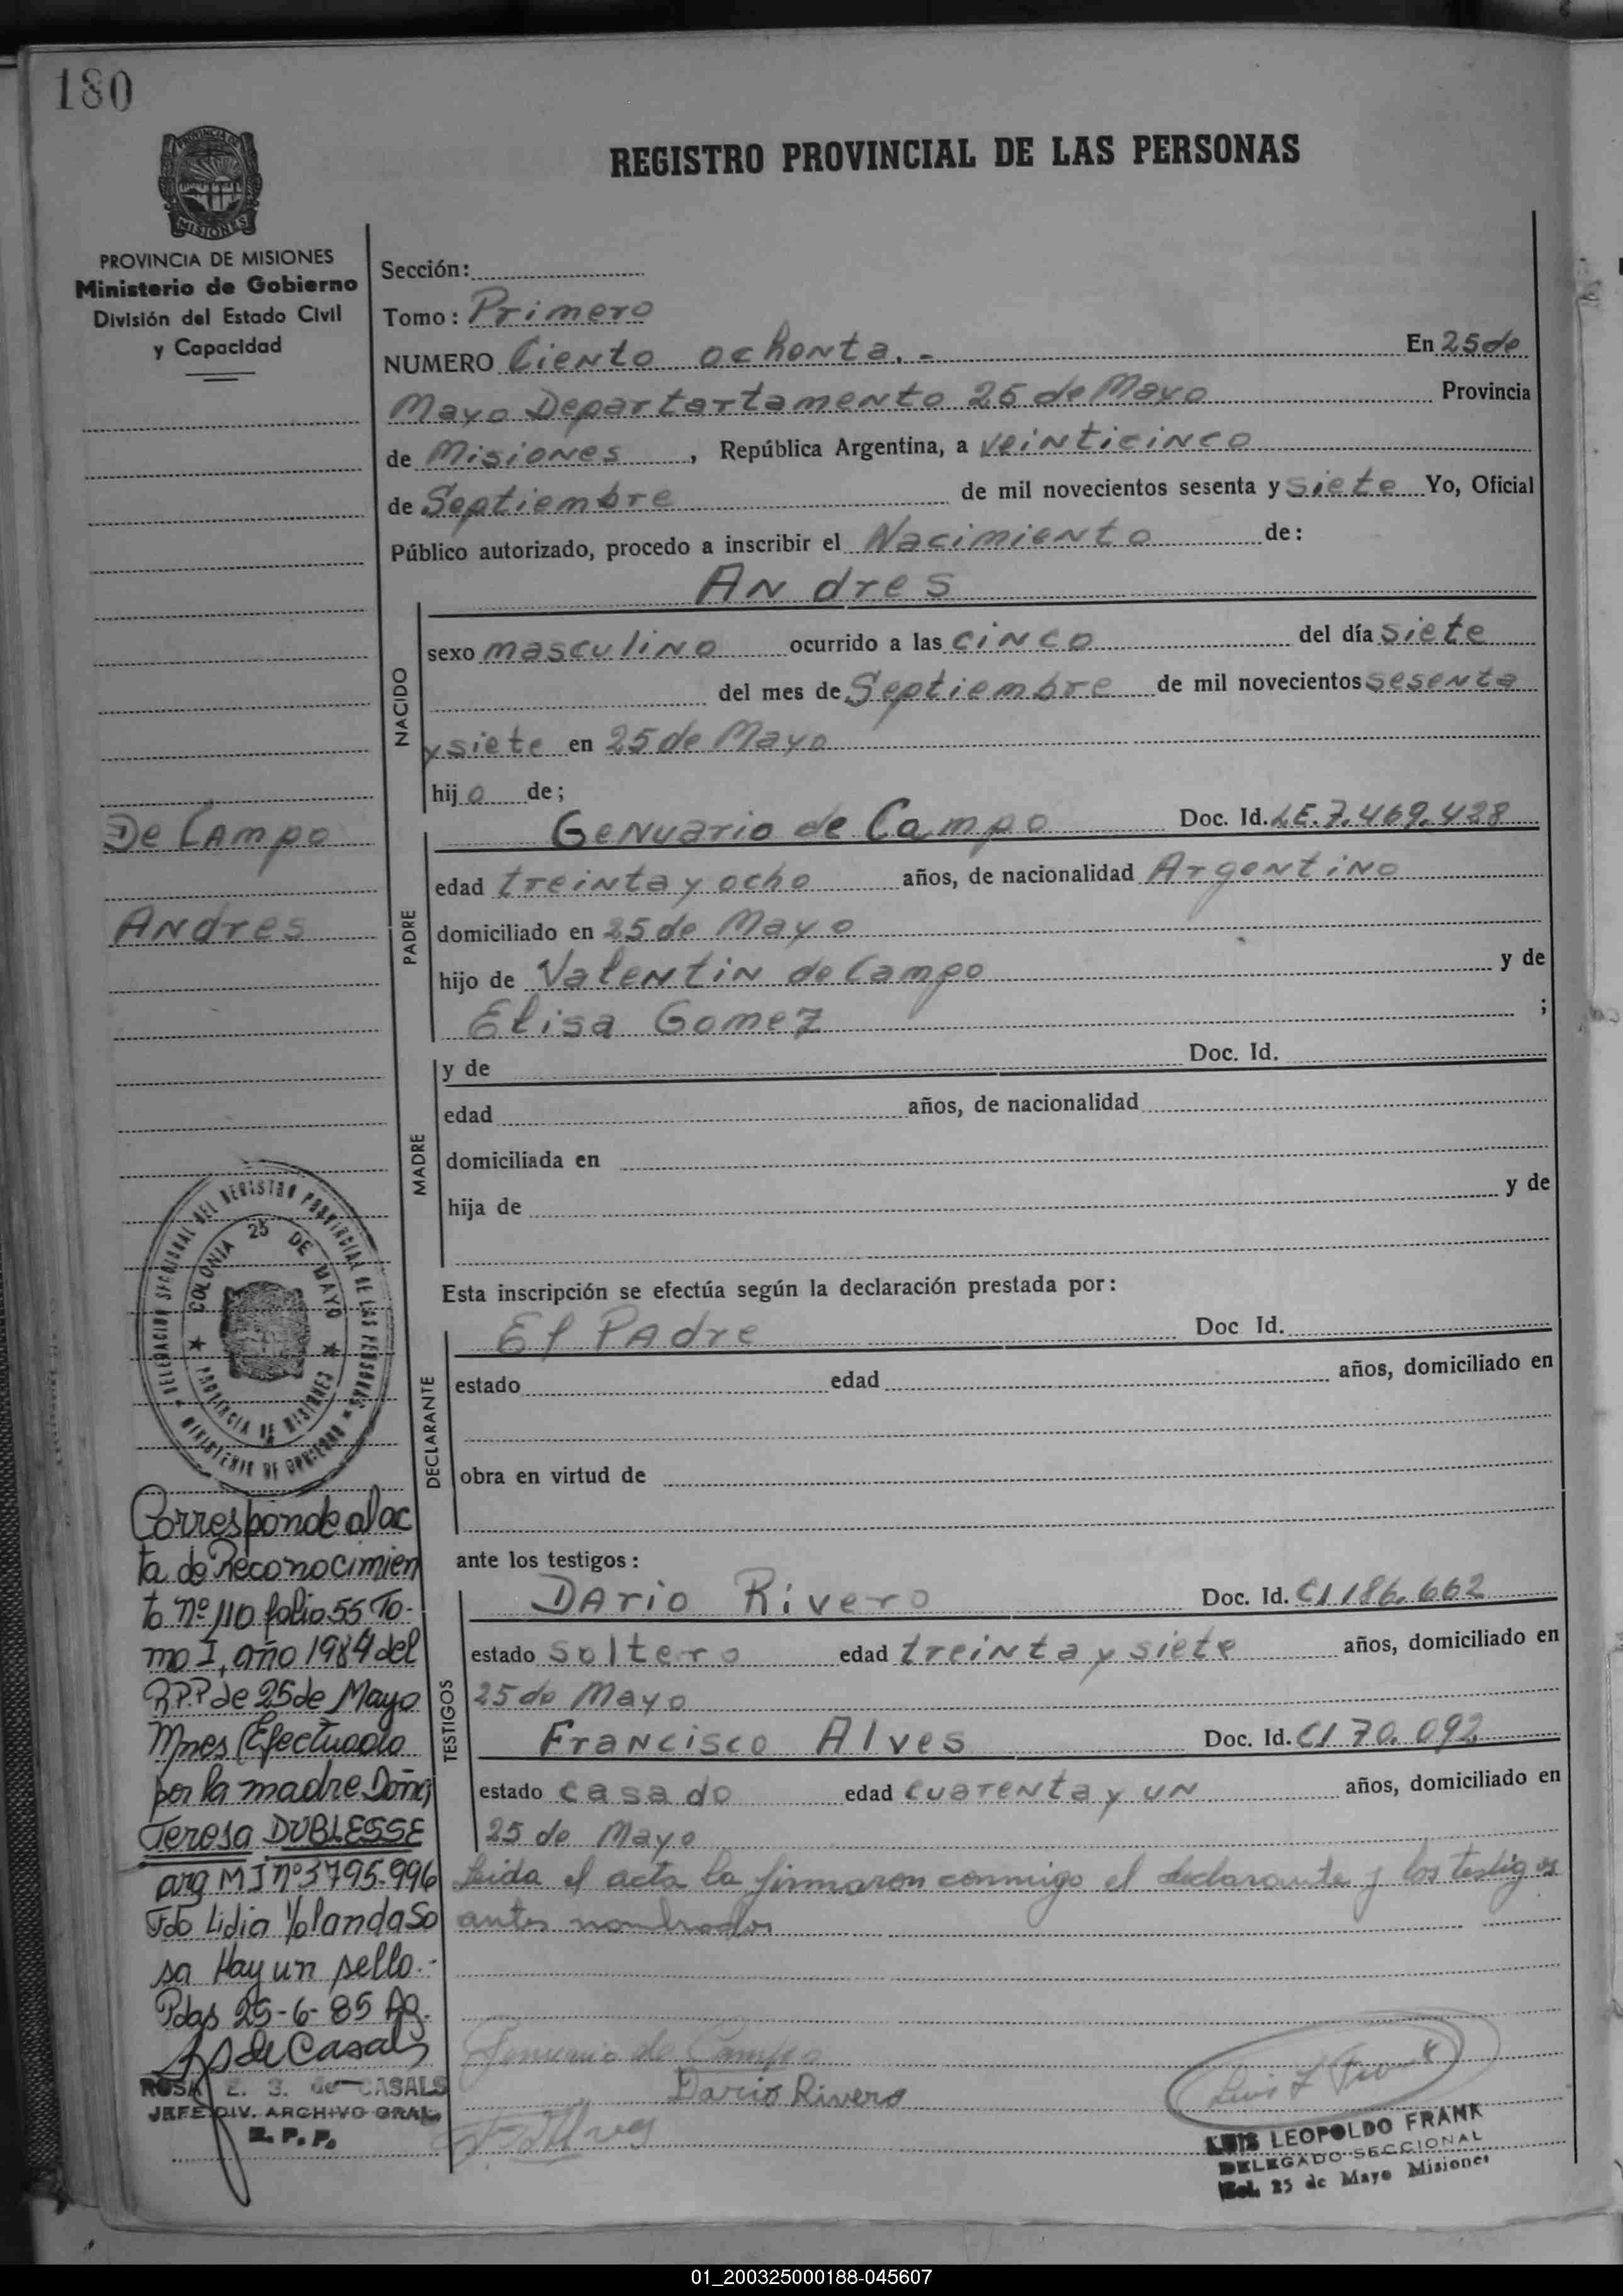 180
PROVINCIA DE
MISIONES
REGISTRO PROVINCIAL DE LAS PERSONAS
PROVINCIA DE MISIONES
Ministerio de Gobierno
División del Estado Civil
y Capacidad
Sección:
Tomo: Primero
NUMERO Ciento ochenta.- En 25 de
Mayo Departartamento 25 de Mayo Provincia
de Misiones, República Argentina, a veinticinco
de Septiembre de mil novecientos sesenta y siete Yo, Oficial
Público autorizado, procedo a inscribir el Nacimiento de:
Andres
NACIDO
sexo masculino ocurrido a las cinco del día siete
del mes de Septiembre de mil novecientos sesenta
y siete en 25 de Mayo
hijo de;
De Campo
Andres
PADRE
Genuario de Campo Doc. Id. LE. 7.469.428
edad treinta y ocho años, de nacionalidad Argentino
domiciliado en 25 de Mayo
hijo de Valentin de Campo y de
Elisa Gomez ;
MADRE
y de Doc. Id.
edad años, de nacionalidad
domiciliada en
hija de y de
DELEGACION SECCIONAL DEL REGISTRO PROVINCIAL DE LAS PERSONAS
MINISTERIO DE GOBIERNO
COLONIA 25 DE MAYO
PROVINCIA DE MISIONES
Esta inscripción se efectúa según la declaración prestada por:
DECLARANTE
El Padre Doc Id.
estado edad años, domiciliado en
obra en virtud de
ante los testigos:
TESTIGOS
Dario Rivero Doc. Id. CI 186.662
estado soltero edad treinta y siete años, domiciliado en
25 de Mayo
Francisco Alves Doc. Id. CI 70.092
estado casado edad cuarenta y un años, domiciliado en
25 de Mayo
Leida el acta la firmaron conmigo el declarante y los testigos
antes nombrados
Corresponde al ac
ta de Reconocimien
to nº 110 folio 55 To-
mo I, año 1984 del
R.P.P de 25 de Mayo
Mnes (Efectuado
por la madre Doña
Teresa DUBLESSE
arg MI nº 3795.996
Fdo Lidia Yolanda So
sa Hay un sello.-
Pdas 25-6-85
de Casals
ROSA E. S. de CASALS
JEFE DIV. ARCHIVO GRAL.
R. P. P.
Genuario de Campo
Dario Rivero
Alves
LUIS LEOPOLDO FRANK
DELEGADO SECCIONAL
Col. 25 de Mayo Misiones
01_200325000188-045607